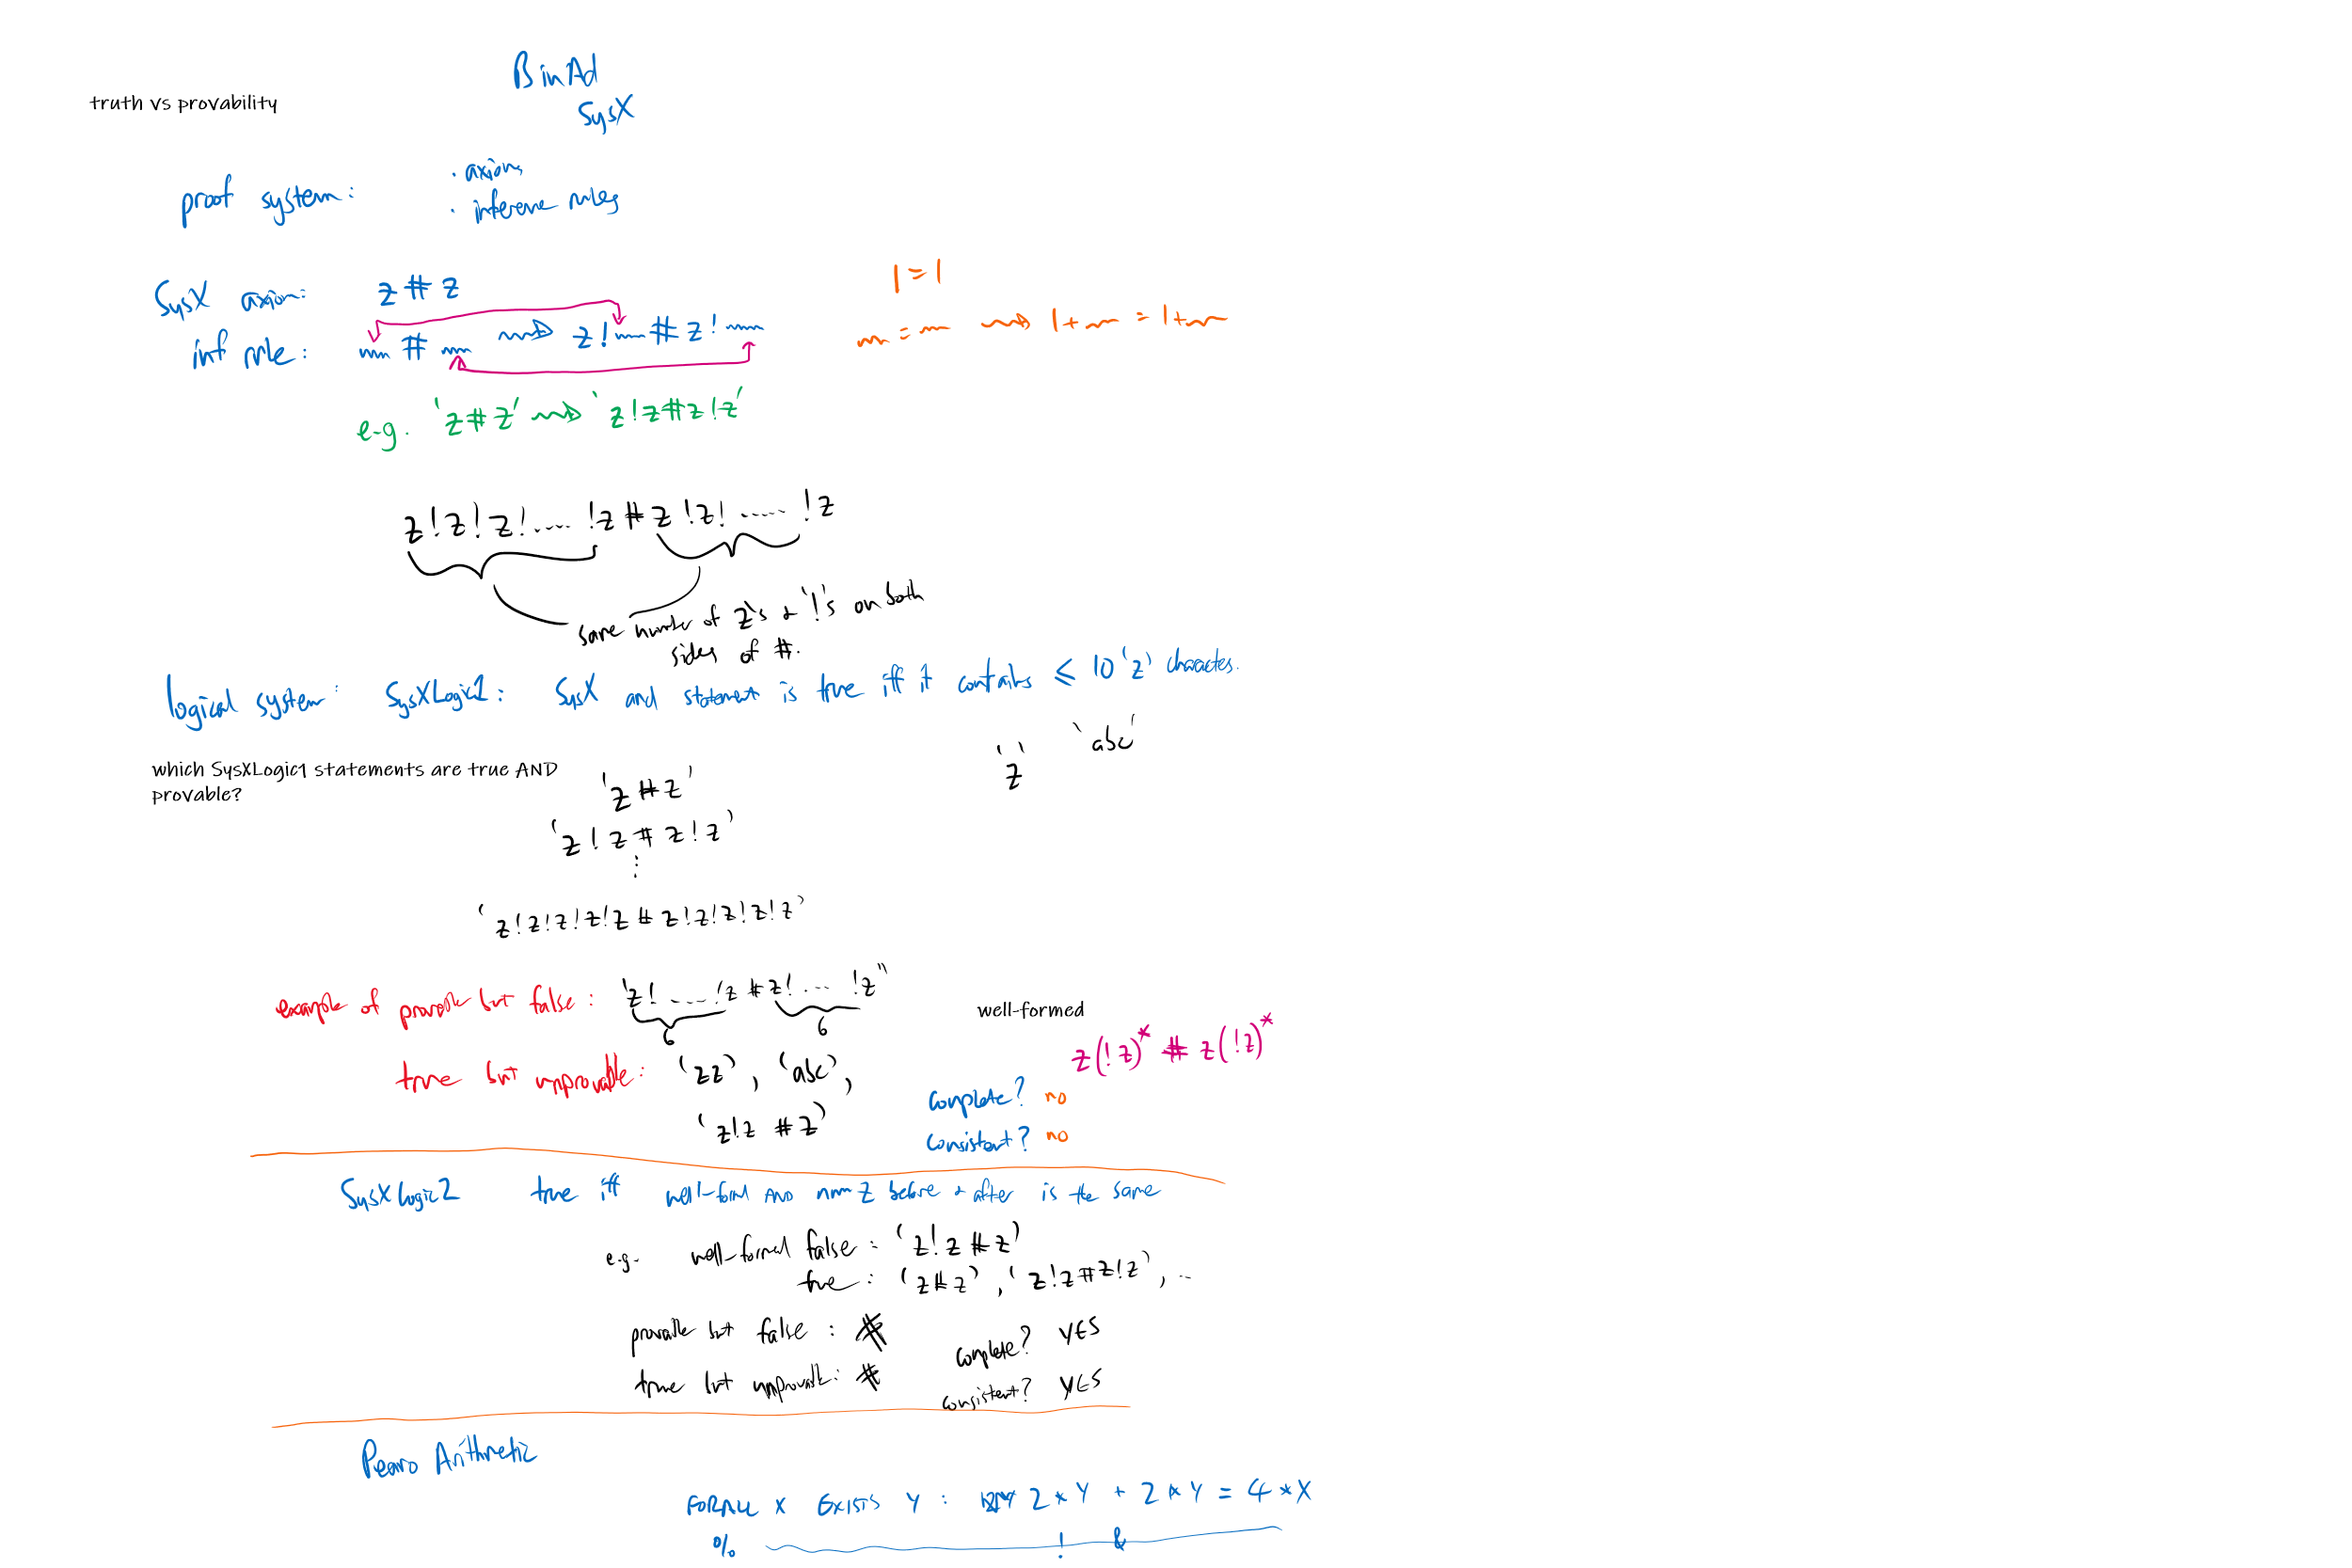 BinAd
SysX
truth vs provability
proof system:
· axioms
· inference rules
SysX axiom: z # z
inf rule: ~~ # ~~ ~~> z!~~ # z!~~
1 = 1
~ = ~ ~~> 1+~ = 1+~
e.g. 'z#z' ~~> 'z!z#z!z'
z!z!z!.... !z # z!z!..... !z
same number of z's & '!'s on both
sides of #.
logical system: SysXLogic1: SysX and statement is true iff it contains ≤ 10 'z' characters.
'z' 'abc'
which SysXLogic1 statements are true AND
provable?
'z#z'
'z!z#z!z'
⋮
'z!z!z!z!z#z!z!z!z!z'
example of provable but false: 'z!....!z#z!... !z"
6 6
true but unprovable: 'zz', 'abc',
'z!z #z'
well-formed
z(!z)* # z(!z)*
complete? no
consistent? no
SysXLogic2 true iff well-form AND num z before & after is the same
e.g. well-formed false: 'z!z#z'
true: 'z#z', 'z!z#z!z', ..
provable but false: #
true but unprovable: #
complete? YES
consistent? YES
Peano Arithmetic
FORALL X EXISTS Y : 2*Y + 2*Y = 4*X
% ! &